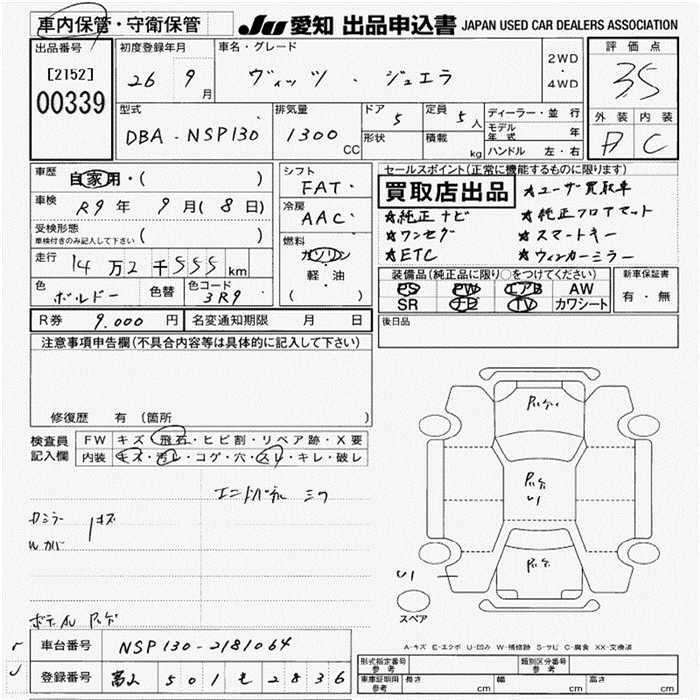 車内保管・守衛保管 JU 愛知 出品申込書 JAPAN USED CAR DEALERS ASSOCIATION
出品番号 初度登録年月 車名・グレード 2WD・4WD 評価点
[2152] 26 9月 ヴィッツ・ジュエラ 35
00339
型式 排気量 ドア 定員 ディーラー・並行 外装 内装
DBA-NSP130 1300CC 5 5人 モデル年式 年 D C
形状 積載 kg ハンドル 左・右
車歴 自家用・( ) シフト FAT セールスポイント(正常に機能するものに限り)
車検 R9年 9月(8日) 冷房 AAC 買取店出品 ★ユーザー買取車
★純正ナビ ★純正フロアマット
受検形態 ( ) ★ワンセグ ★スマートキー
車検付きのみ記入して下さい
燃料 ガソリン ★ETC ★ウィンカーミラー
走行 14万2千555km 軽・油 装備品(純正品に限り○をつけてください) 新車保証書
色 ボルドー 色替 色コード 3R9 ( ) PS PW エアB AW 有・無
SR ナビ TV カワシート
R券 9.000円 名変通知期限 月 日 後日品
注意事項申告欄(不具合内容等は具体的に記入して下さい)
修復歴 有(箇所 )
検査員 FW キズ・飛石・ヒビ割・リペア跡・X要
記入欄 内装 キズ・汚レ・コゲ・穴・スレ・キレ・破レ
キズ
U1
U1
スペア
A-キズ E-エクボ U-凹み W-補修跡 S-サビ C-腐食 XX-交換済
車台番号 NSP130-2181064
登録番号 501 2836
型式指定番号 参考 類別区分番号 参考
車庫証明用 参考 長さ cm 幅 cm 高さ cm